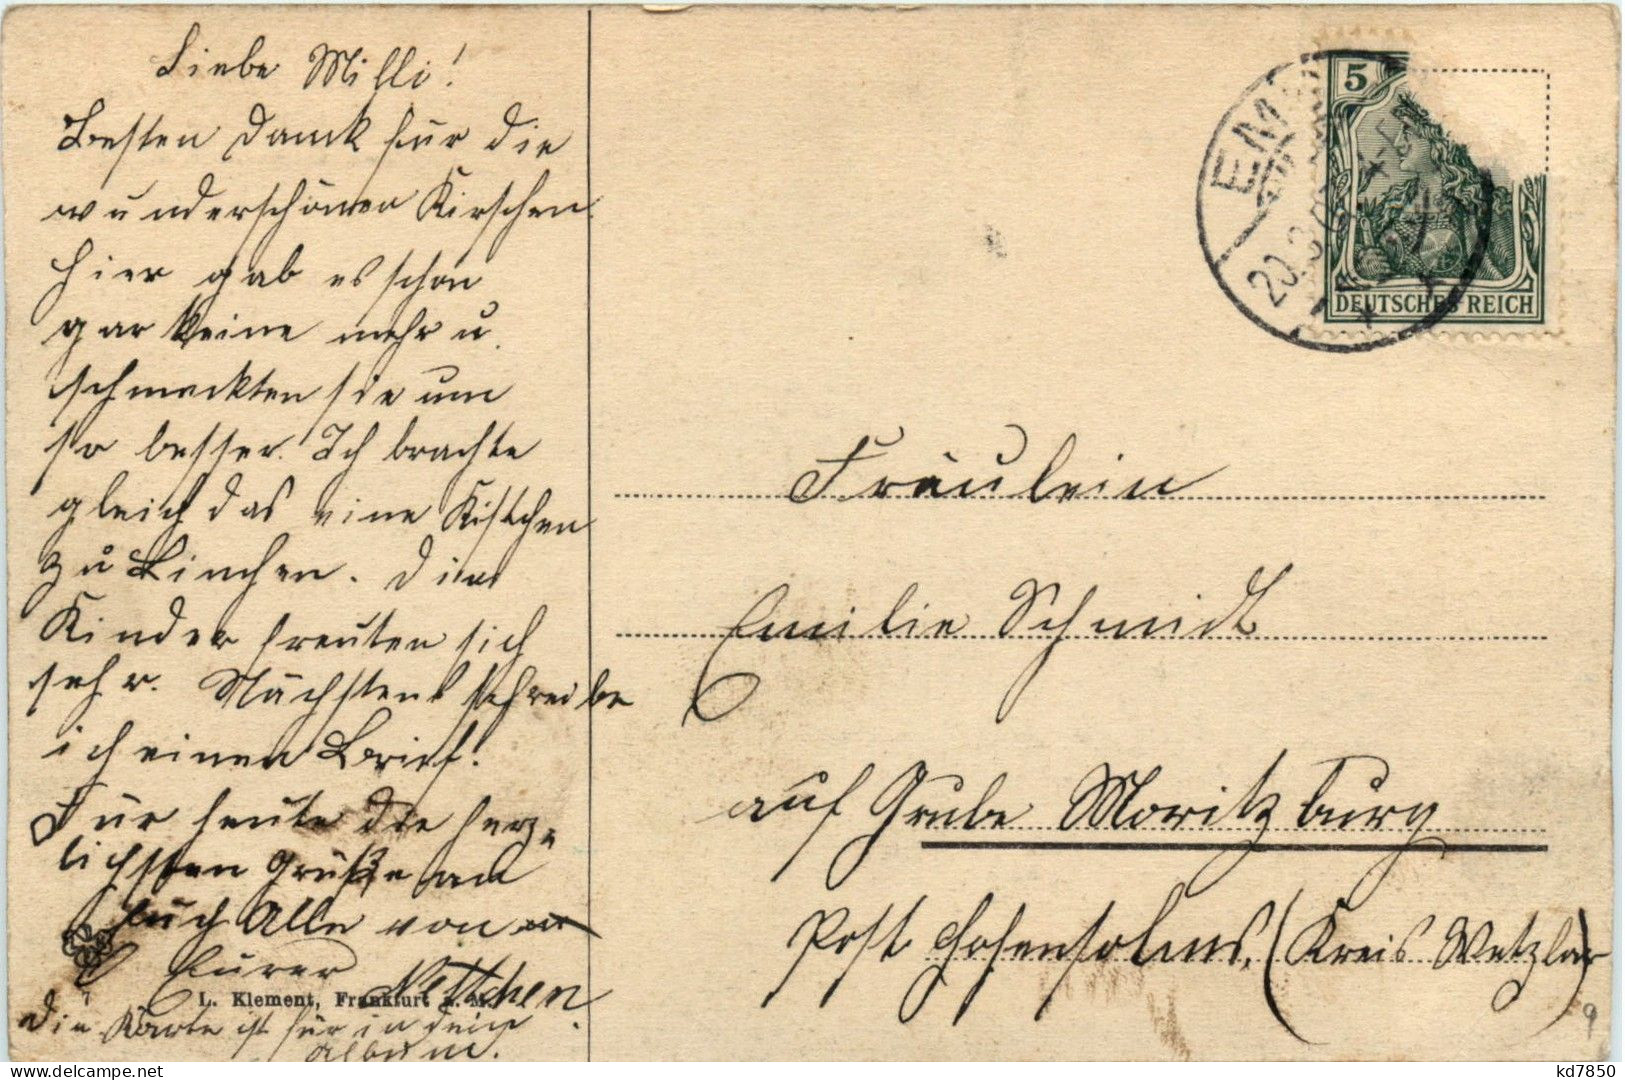 Liebe Milli!
Besten Danck für die
wunderschönen Kirschen.
Hier gab es schon
gar keine mehr u.
schmeckten sie um
so besser. Ich brachte
gleich das eine Kistchen
zu Linchen. Die
Kinder freuten sich
sehr. Nächstens schreibe
ich einen Brief!
Für heute die herz-
lichsten Grüße an
Euch Alle von
Eurer Nettchen
L. Klement, Frankfurt a. M.
Die Karte ist für in dein
Album.
5
DEUTSCHES REICH
EM
20.
Fräulein
Emilie Schmidt
auf Grube Moritzburg
Post Hohensolms, (Kreis Wetzlar)
9
kd7850